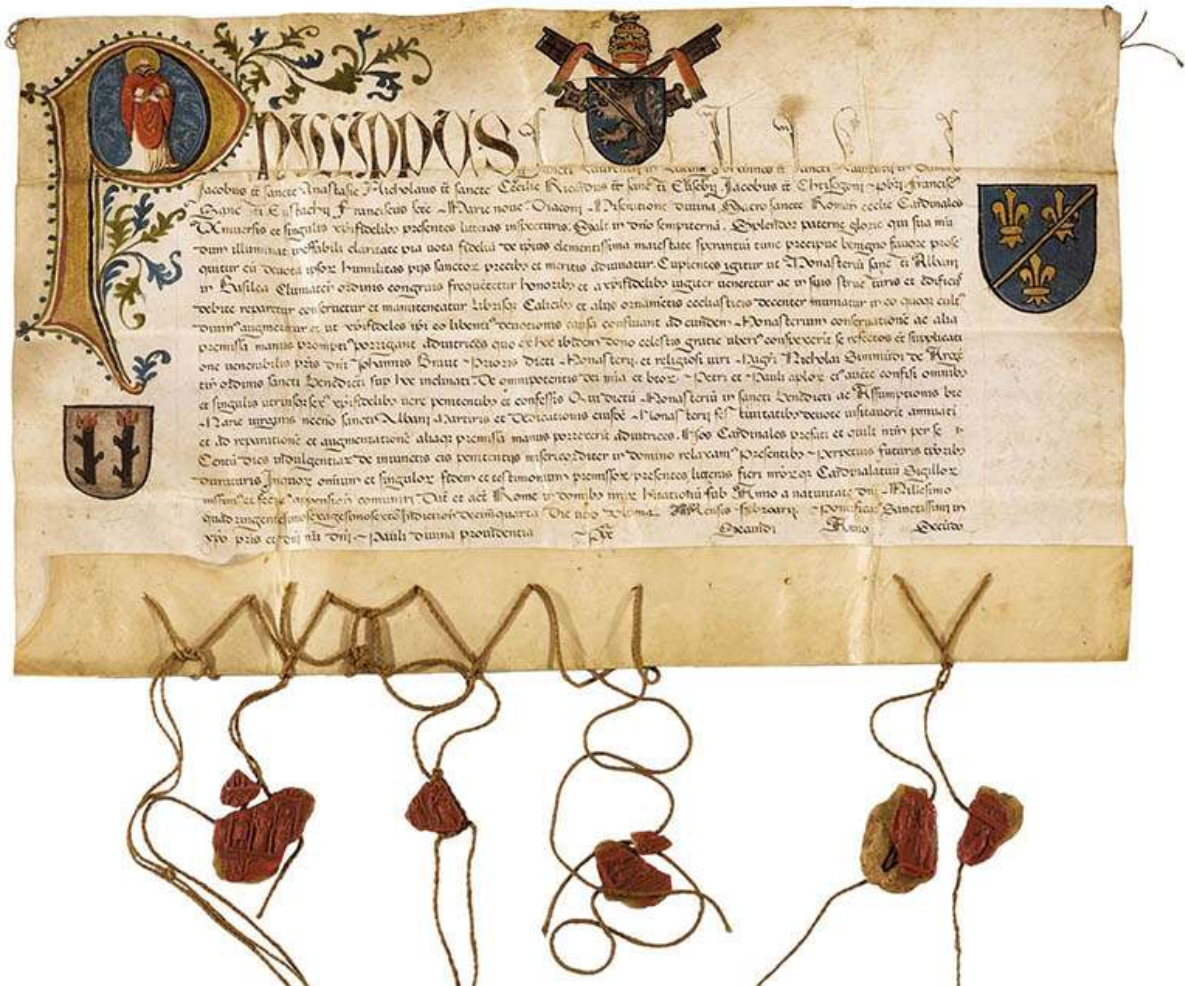 PHILIPPUS
Jacobus tt sancte Anastasie Nicholaus tt sancte Cecilie Ricardus tt sancti Eusebij Jacobus tt Chrisogoni pbri Francisc
Sancti Eustachij Franciscus sce Marie noue Diaconi Miseratione diuina Sacro sancte Roman ecclie Cardinales
Uniuersis et singulis xpifidelibs presentes litteras inspecturis Salt in dno sempiternā Splendor paterne glorie qui sua mū
dum illuminat ineffabili claritate pia uota fideliū de ipius clementissima maiestate sperantiū tunc precipue benigno fauore prose
quitur cū deuota ipsor humilitas pijs sanctor precibs et meritis adiuuatur Cupientes igitur ut Monasteriū sancti Albani
in Basilea Cluniaceñ ordinis congruis frequētetur honoribs et a xpifidelibs iugiter ueneretur ac in suis structuris et edificijs
debite reparetur conseruetur et manuteneatur libris Calicibs et alijs ornamētis ecclesiasticis decenter muniatur in eo quoqz cult
diuin augmētetur et ut xpifideles ipi eo libenti deuotionis causa confluant ad eundem Monasterium conseruationē ac alia
premissa manus prompti porrigant adiutrices quo ex hoc ibidem dono celestis gratie uberi conspexerit se refectos et supplicati
one uenerabilis pris dni Johannis Prioris dicti Monasterij et religiosi uiri Nicholai de
ordinis sancti Benedicti sup hoc inclinati De omnipotentis dei mia et beor Petri et Pauli aplor eī aucte confisi omnibs
et singulis utriusqz sex xpifidelibs uere penitentibs et confessis Qui dictū Monasteriū in sancti Benedicti ac Assumptionis bte
Marie uirginis necnō sancti Albani Martiris et Dedicationis eiusdē Monasterij festiuitatibs deuote uisitauerit annuati
et ad reparationē et augmentationē aliaqz premissa manus porrexerit adiutrices Nos Cardinales prefati et quilt nrm per se
Centū dies indulgentiar de iniunctis eis penitentijs misericorditer in domino relaxam Presentibs Perpetuis futuris tpribs
duraturis In quor omnium et singulor fidem et testimonium premissor presentes litteras fieri nror qz Cardinalatuū Sigillor
iussim et fecim appensiōe comuniri Dat et act Rome in domibs nrar sub Anno a natiuitate dni Millesimo
quadringentesimosexagesimosexto Indictiōe decimaquarta Die mensis februarij Pontificat Sanctissimi in
xpo pris et dni nri dni Pauli diuina prouidentia Ppe Secundi Anno Secūdo